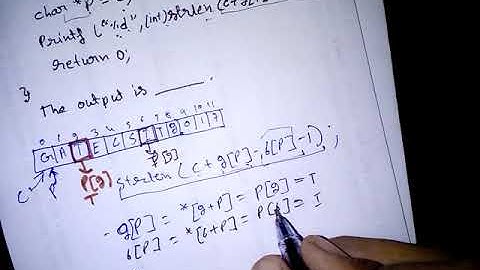 char *P =
Printf ("%d", (int)strlen (c+
return 0;
}
The output is ____.
0 1 2 3 4 5 6 7 8 9 10 11
G A T E C S I T 2 0 1 7
C P P[2] P[6]
T
strlen (c + 2[P] - 6[P] - 1) ;
- 2[P] = *[2+P] = P[2] = T
6[P] = *[6+P] = P[6] = I